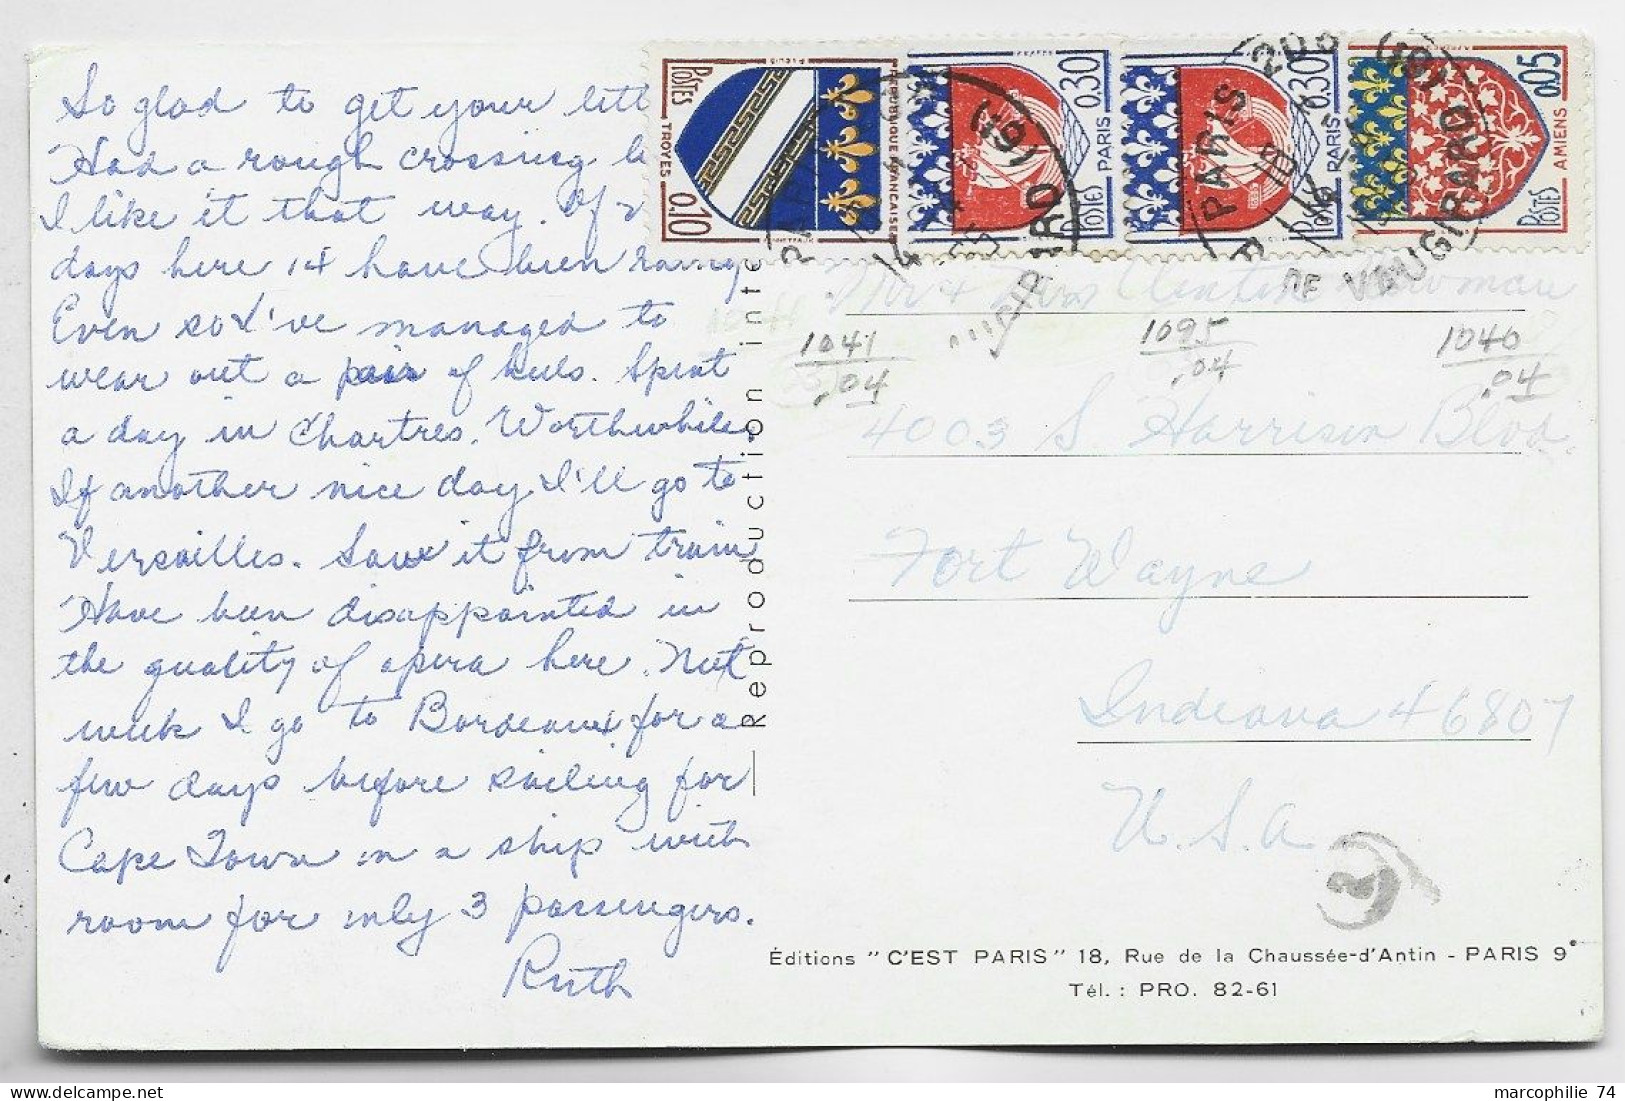 So glad to get your
Had a rough crossing
I like it that way. Of
days here 14 have been
Even so I've managed to
wear out a pair of heels. Spent
a day in Chartres. Worthwhile.
If another nice day I'll go to
Versailles. Saw it from train
Have been disappointed in
the quality of opera here. Next
week I go to Bordeaux for a
few days before sailing for
Cape Town on a ship with
room for only 3 passengers.
Ruth
Reproduction inte
POSTES TROYES 0,10 REPUBLIQUE FRANÇAISE
0,30 PARIS POSTES
0,30 PARIS POSTES
0,05 AMIENS POSTES
PARIS
DE VAUGIRARD
Mr & Mrs Clinton
1041
.04
1095
.04
1040
.04
4003 S Harrison Blvd.
Fort Wayne
Indiana 46807
U.S.A.
2
Éditions "C'EST PARIS" 18, Rue de la Chaussée-d'Antin - PARIS 9e
Tél. : PRO. 82-61
marcophilie 74